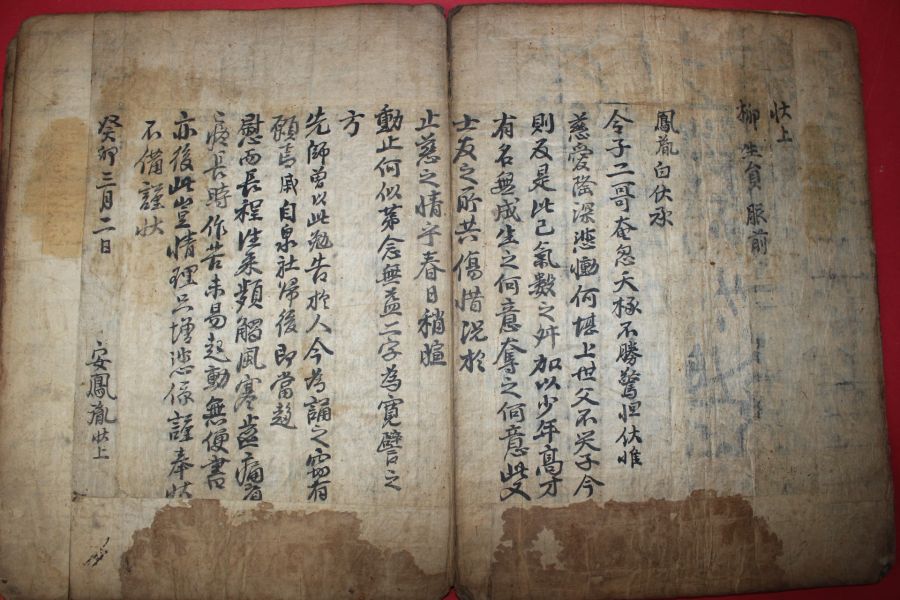 狀上
柳生員 服前
鳳胤白伏承
令子二哥奄忽夭椓不勝驚怛伏惟
慈愛隆深悲慟何堪上世父不哭子今
則反是此已氣數之舛加以少年高才
有名無成生之何意奪之何意此又
士友之所共傷惜況於
止慈之情乎春日稍暄
動止何似第念無益二字為寬譬之
方
先師曾以此勉告於人今為誦之窃有
願焉 戚自泉社歸後即當趨
慰而長程往來頻觸風寒
長時作苦未易起動無便書
亦後此豈情理只增悲係謹奉狀
不備謹狀
癸卯三月二日
安鳳胤狀上